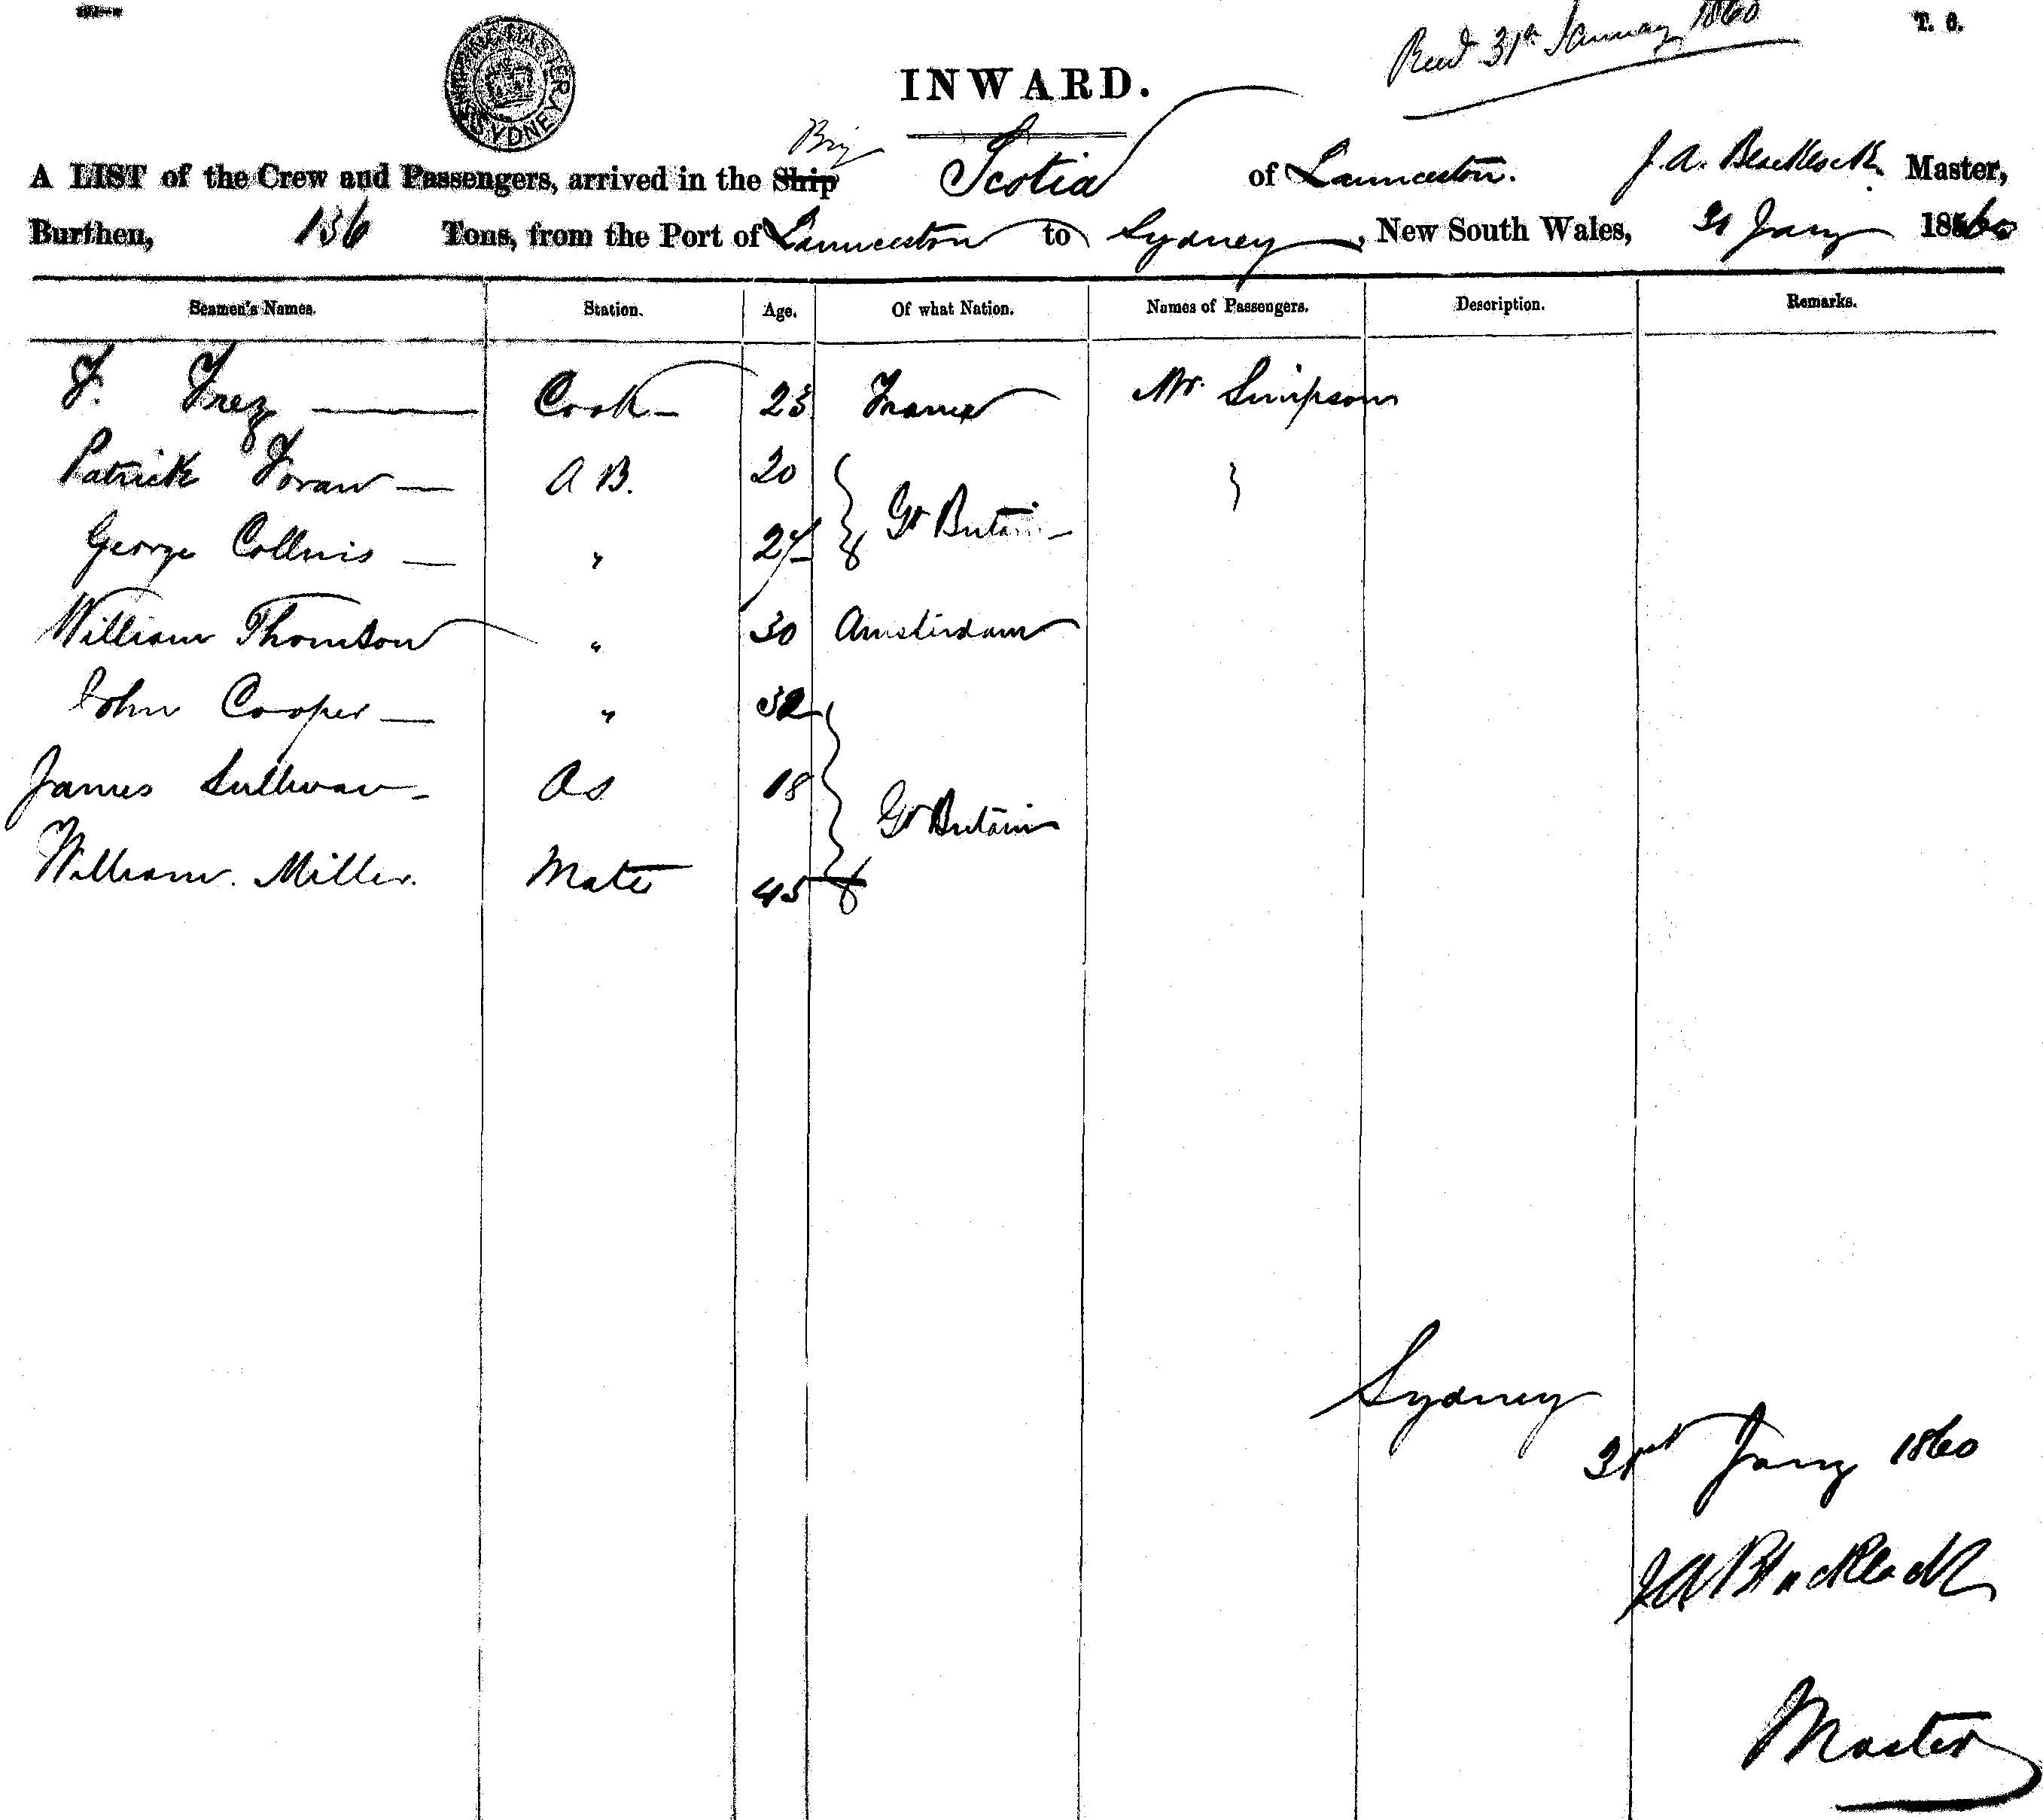 Recd 31st January 1860
T. C.
SHIPPING MASTER SYDNEY
INWARD.
Brig
A LIST of the Crew and Passengers, arrived in the Ship Scotia of Launceston. J. A. Blacklock Master,
Burthen, 136 Tons, from the Port of Launceston to Sydney, New South Wales, 31 Jany 1860
Seamen's Names. Station. Age. Of what Nation. Names of Passengers. Description. Remarks.
F. Frez — Cook - 23 France Mr. Simpson
Patrick Foran — A B. 20
Gt Britain -
George Collins — " 27
William Thomson " 30 Amsterdam
John Cooper — " 32
James Sullivan - OS 18
Gt Britain
William. Miller. Mate 45
Sydney
31st Jany 1860
J A Blacklock
Master